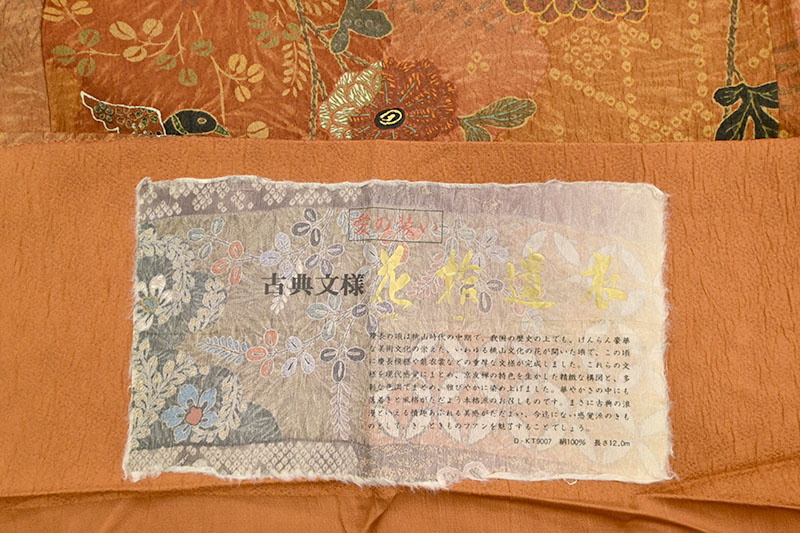 愛の装い
古典文様 花拾遺衣
慶長の頃は桃山時代の中期で、我国の歴史の上でも、けんらん豪華
な美術文化の栄えた、いわゆる桃山文化の花が開いた頃で、この頃
に慶長模様や戯衣裳などの重厚な文様が完成しました。これらの文
様を現代感覚にまとめ、京友禅の特色を生かした精緻な構図と、多
彩な色調でまとめ、雅びやかに染め上げました。華やかさの中にも
落着きと風格がただよう本格派のお召しものです。まさに古典の浪
漫といえる情趣あふれる美感がただよい、今迄にない感覚派のきも
のとして、きっときものファンを魅了することでしょう。
D-KT9007 絹100% 長さ12.0m